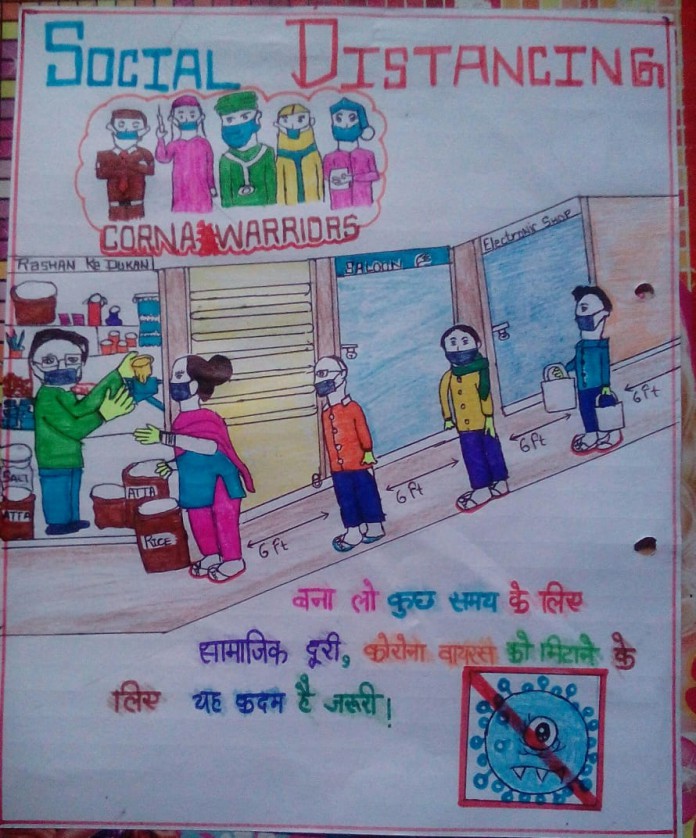 SOCIAL DISTANCING
CORNA WARRIORS
RASHAN KE DUKAN
SALOON
Electronic Shop
6 ft
6 ft
6 ft
6 ft
SALT
ATTA
ATTA
RICE
बना लो कुछ समय के लिए
सामाजिक दूरी, कोरोना वायरस को मिटाने के
लिए यह कदम है जरूरी!